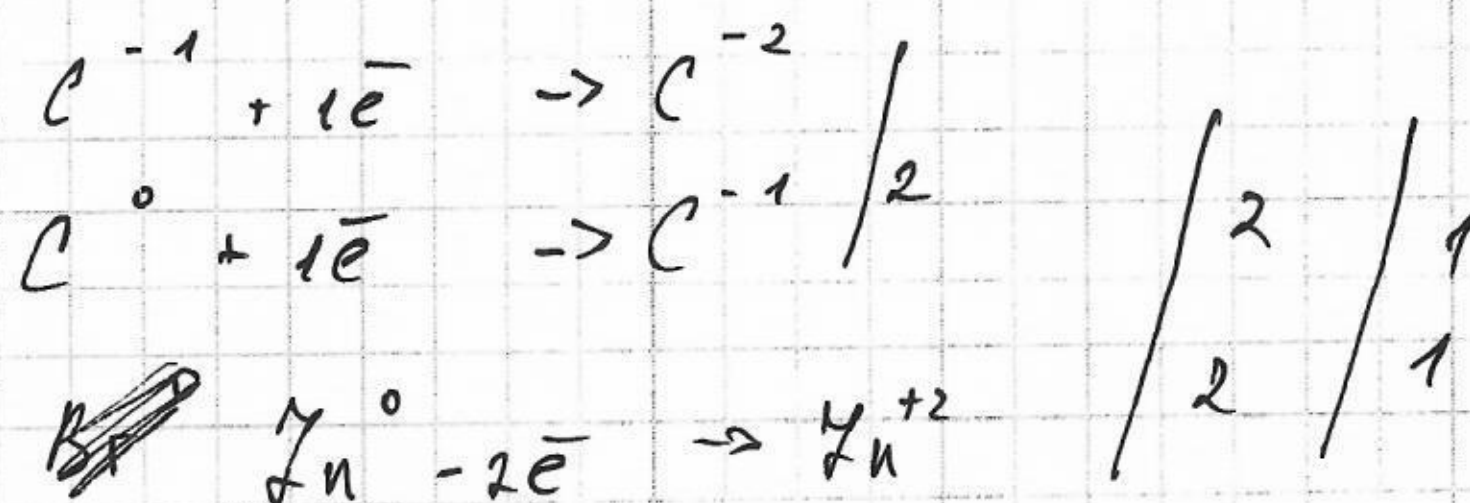 C⁻¹ + 1e̅ -> C⁻² /
C⁰ + 1e̅ -> C⁻¹ / 2 / 2 / 1
Zn⁰ - 2e̅ -> Zn⁺² / 2 / 1